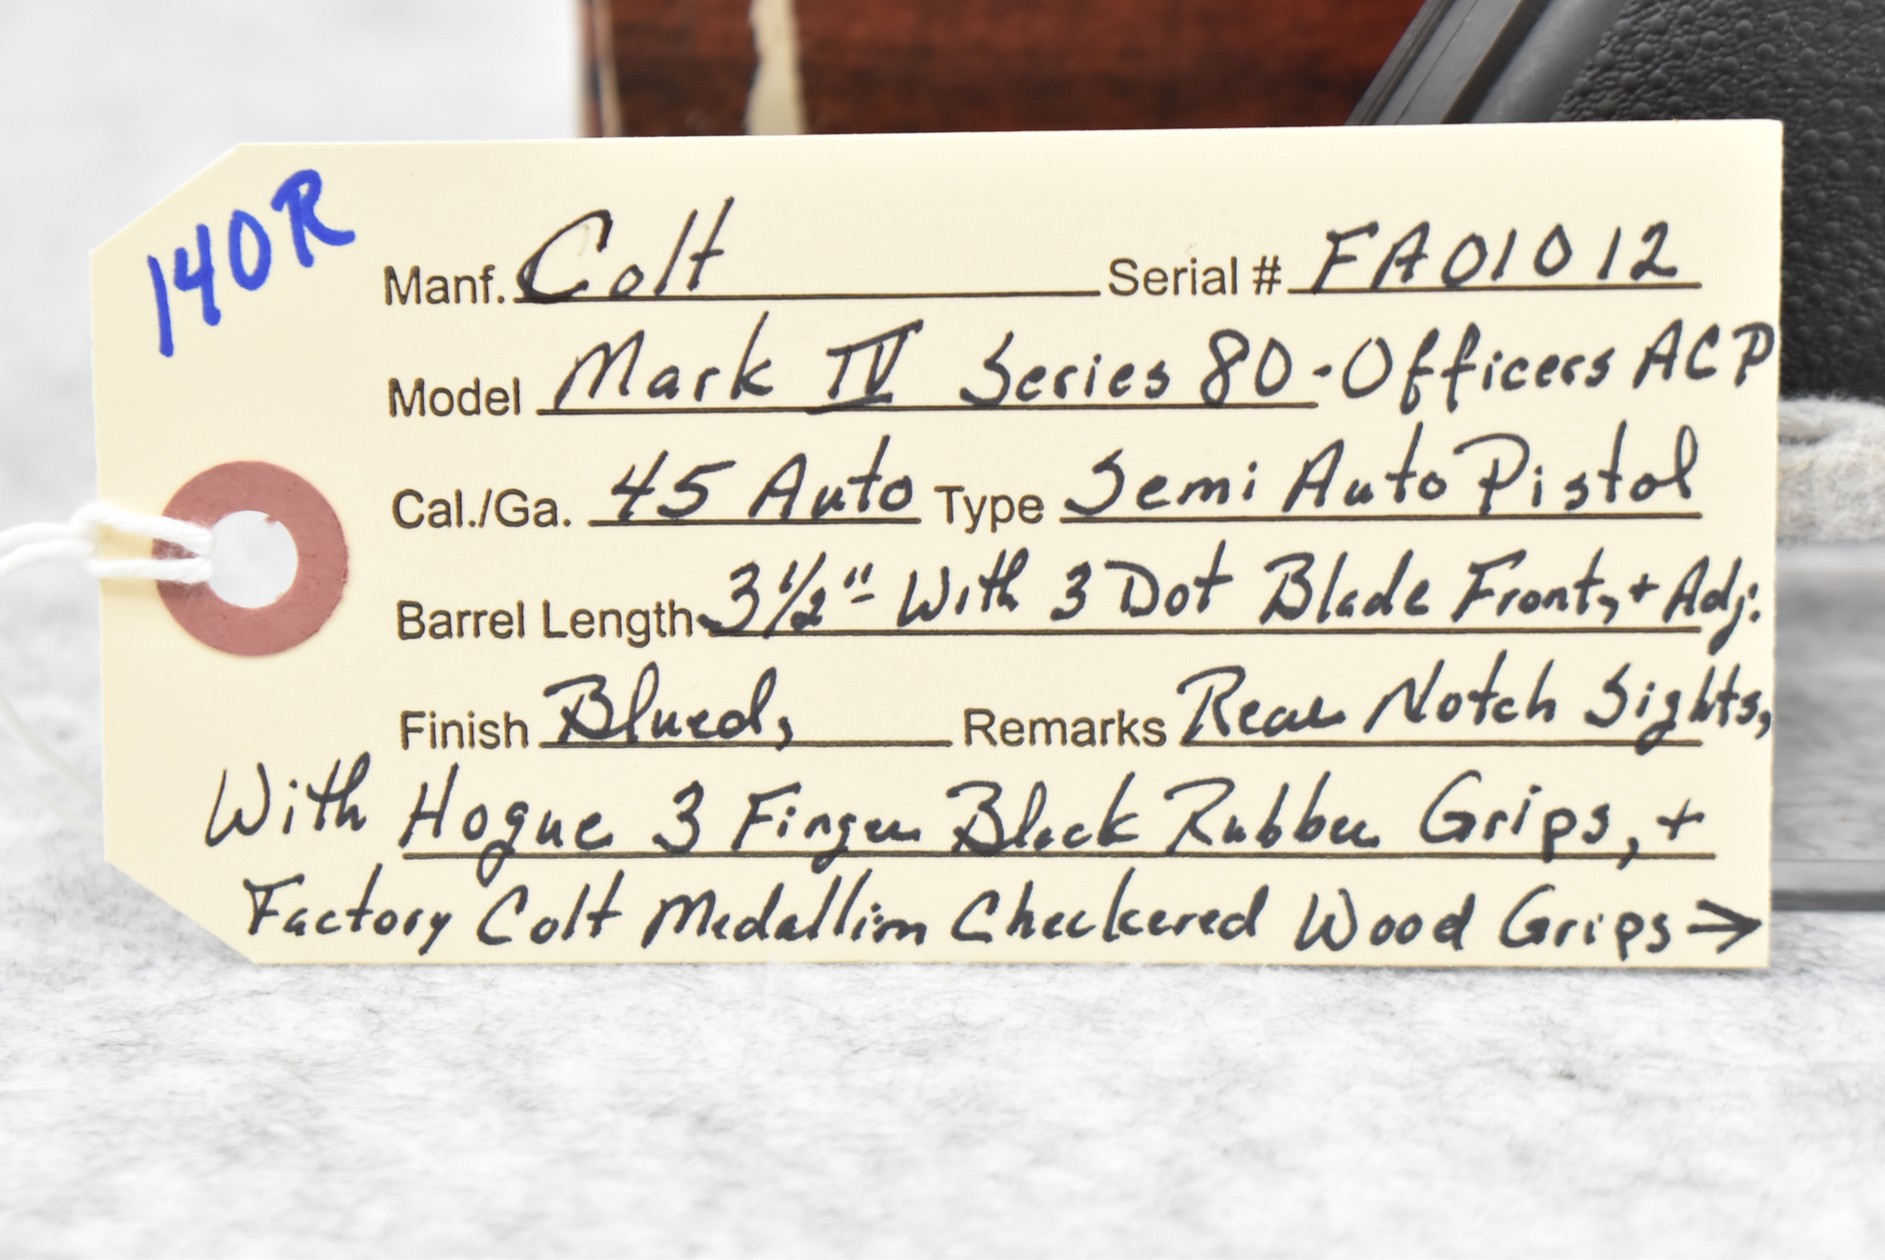 140R
Manf. Colt Serial # FA01012
Model Mark IV Series 80-Officers ACP
Cal./Ga. 45 Auto Type Semi Auto Pistol
Barrel Length 3 1/2" With 3 Dot Blade Front, + Adj.
Finish Blued, Remarks Rear Notch Sights,
With Hogue 3 Finger Black Rubber Grips, +
Factory Colt Medallion Checkered Wood Grips →